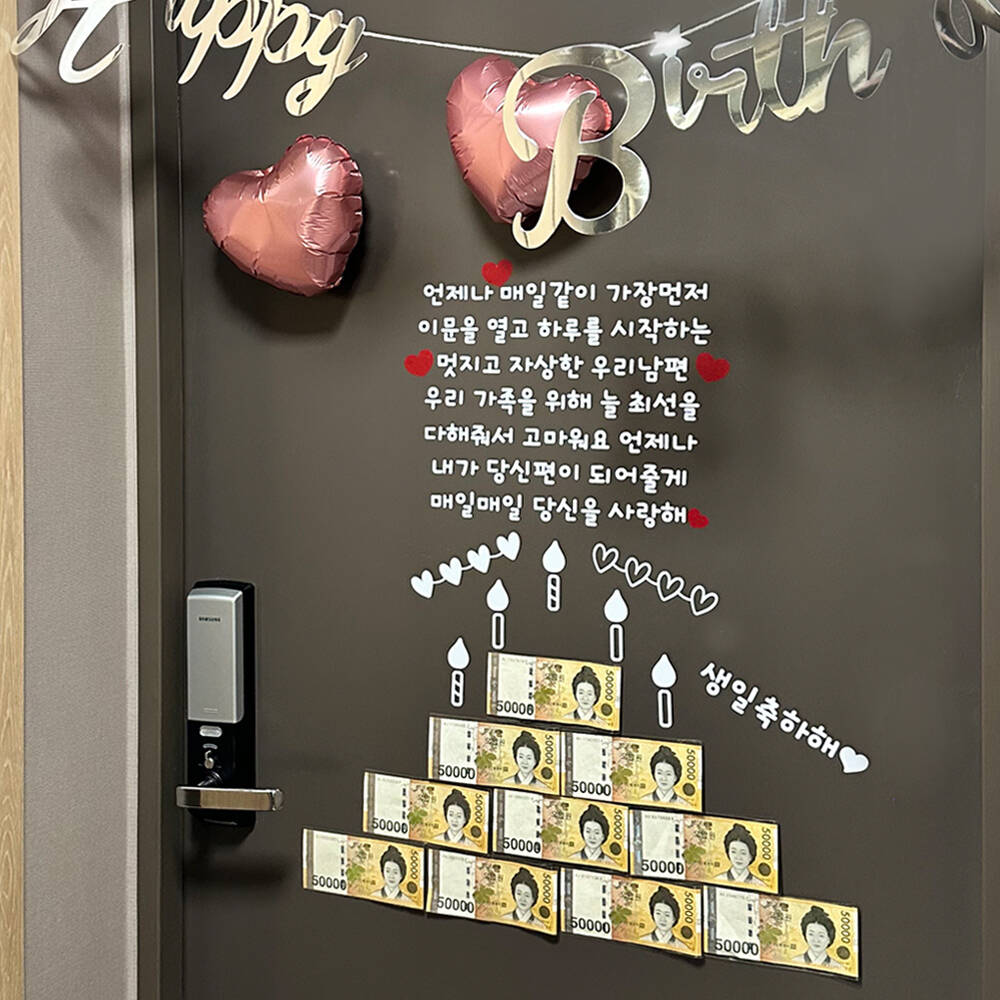 Happy Birth
언제나 매일같이 가장먼저
이문을 열고 하루를 시작하는
멋지고 자상한 우리남편
우리 가족을 위해 늘 최선을
다해줘서 고마워요 언제나
내가 당신편이 되어줄게
매일매일 당신을 사랑해
생일축하해
SAMSUNG
50000 50000
50000 50000
50000 50000
50000 50000
50000 50000
50000 50000
50000 50000
50000 50000
50000 50000
50000 50000